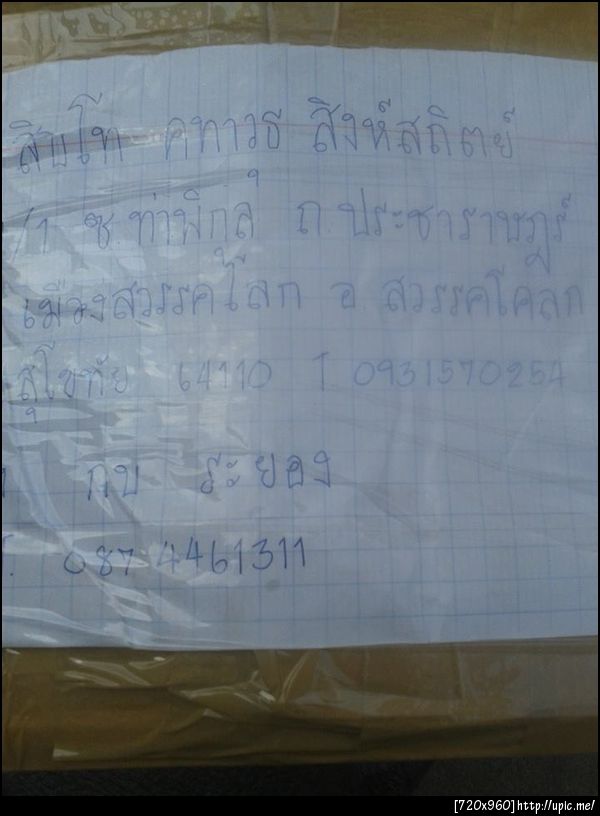 สิบโท คทาวุธ สิงห์สถิตย์
/1 ซ.ท่าพิกุล ถ.ประชาราษฎร์
เมืองสวรรคโลก อ.สวรรคโลก
สุโขทัย 64110 T 0931570254
กบ ระยอง
087 4461311
[720x960]http://upic.me/